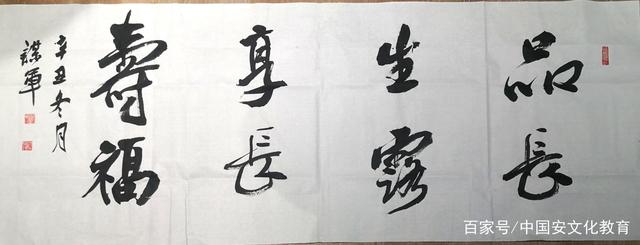 品長
生露
享長
壽福
辛丑冬月
謀軍
百家号/中国安文化教育